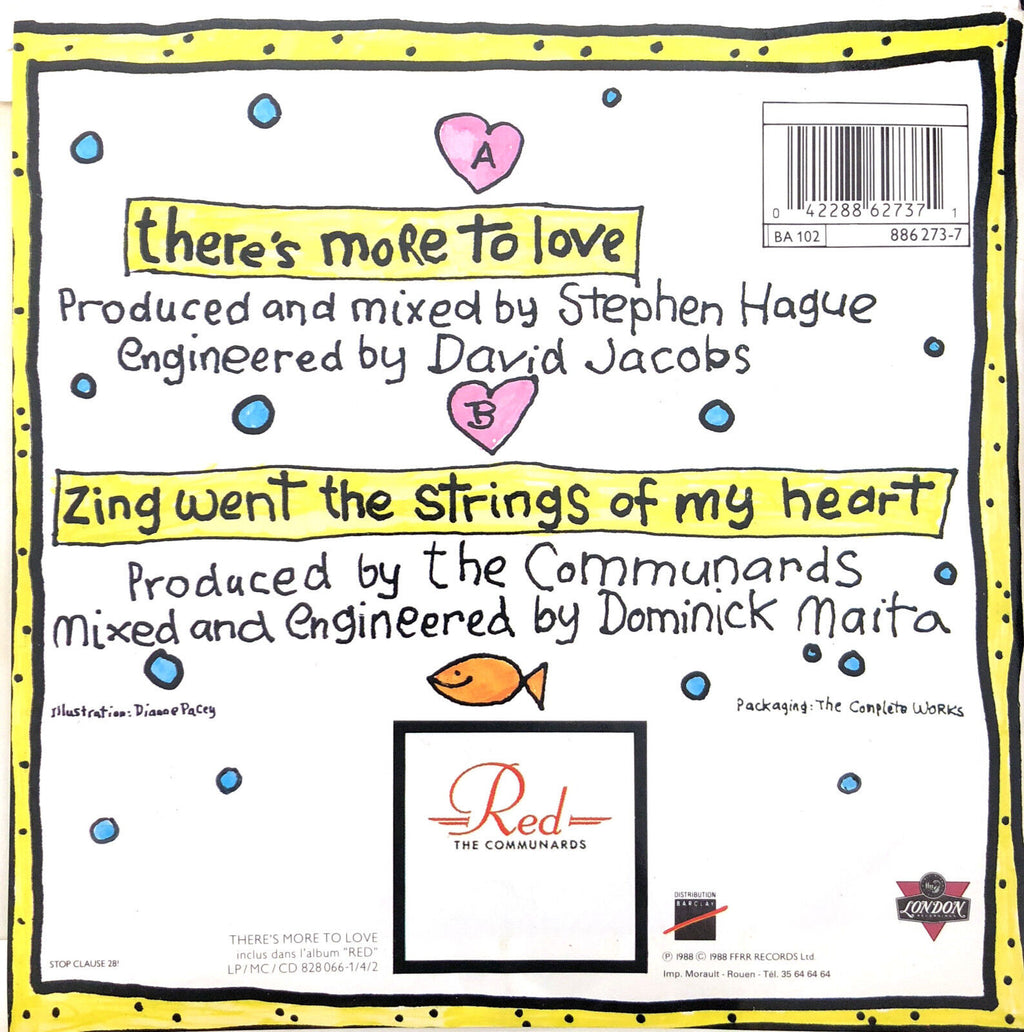 A
there's more to love
Produced and mixed by Stephen Hague
engineered by David Jacobs
0 42288 62737 1
BA 102 886 273-7
B
Zing went the strings of my heart
Produced by the Communards
Mixed and engineered by Dominick Maita
Illustration: Dianne Pacey
Packaging: The Complete Works
Red
THE COMMUNARDS
STOP CLAUSE 28!
THERE'S MORE TO LOVE
inclus dans l'album "RED"
LP/MC/CD 828 066-1/4/2
DISTRIBUTION
BARCLAY
LONDON
RECORDINGS
℗ 1988 © 1988 FFRR RECORDS Ltd.
Imp. Morault - Rouen - Tél. 35 64 64 64